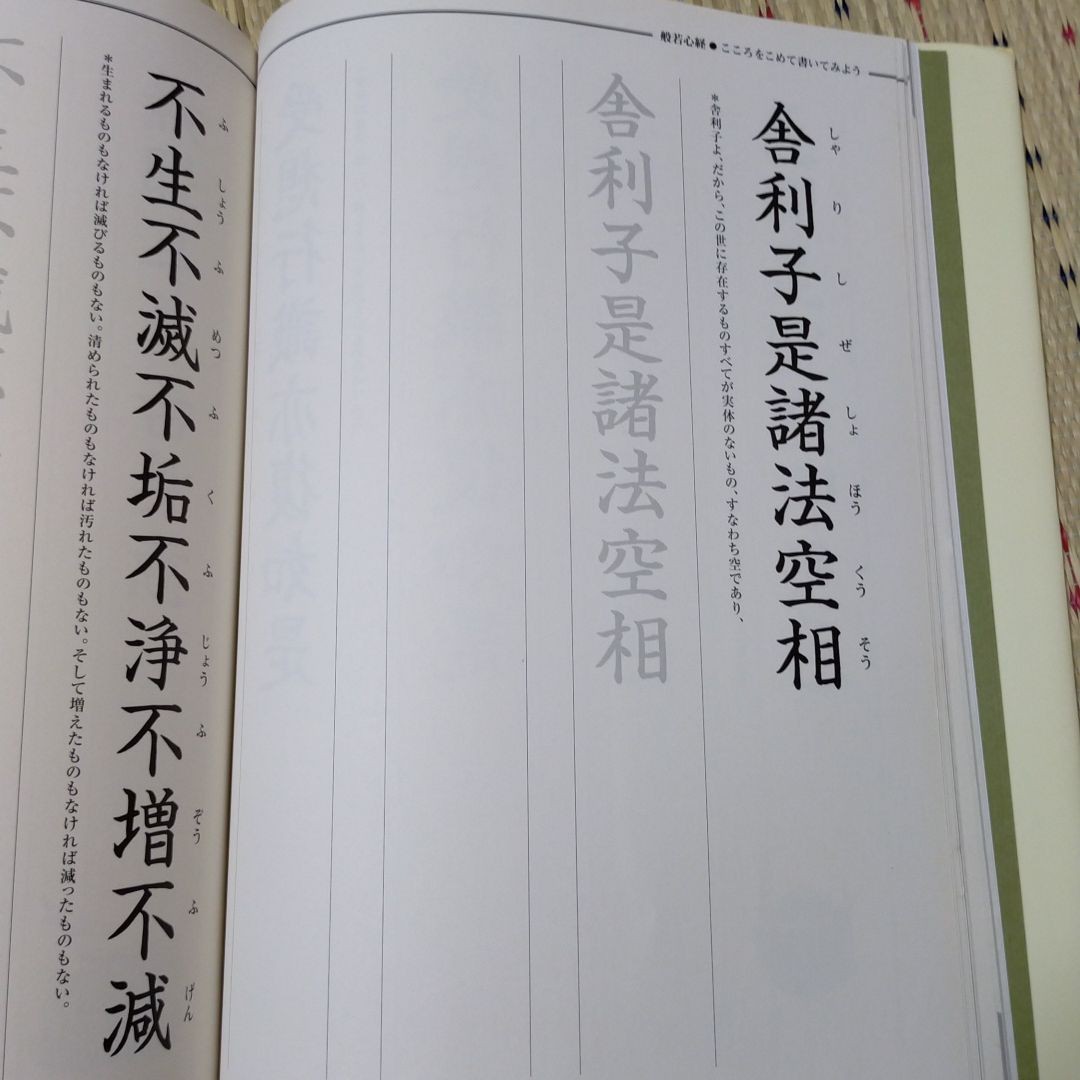 般若心経●こころをこめて書いてみよう
舎利子是諸法空相
しゃ り し ぜ しょ ほう くう そう
*舎利子よ、だから、この世に存在するものすべてが実体のないもの、すなわち空であり、
舎利子是諸法空相
不生不滅不垢不浄不増不減
ふ しょう ふ めつ ふ く ふ じょう ふ ぞう ふ げん
*生まれるものもなければ滅びるものもない。清められたものもなければ汚れたものもない。そして増えたものもなければ減ったものもない。